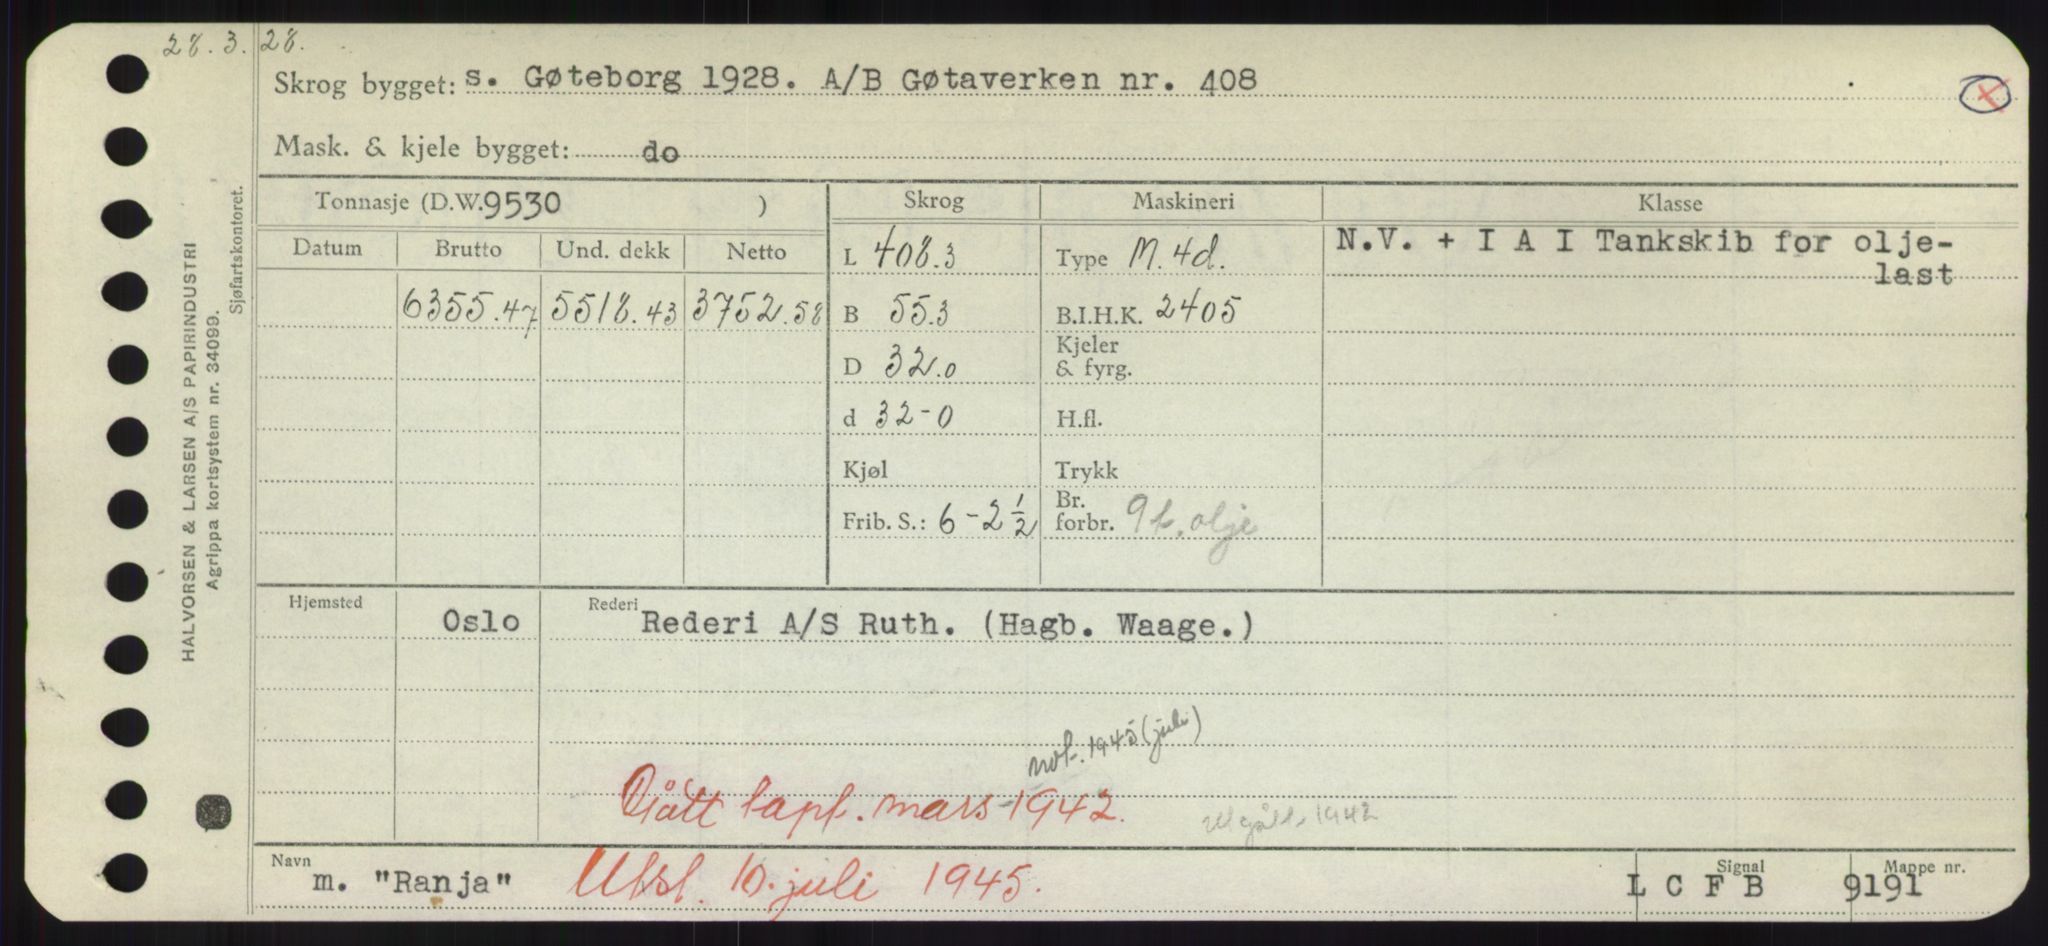 28.3.28.
Skrog bygget: s. Gøteborg 1928. A/B Gøtaverken nr. 408
Mask. & kjele bygget: do
Tonnasje (D.W. 9530 )
Skrog
Maskineri
Klasse
Datum
Brutto
Und. dekk
Netto
6355.47
5518.43
3752.58
L 408.3
B 55.3
D 32.0
d 32-0
Kjøl
Frib. S.: 6-2 1/2
Type M. 4d.
B.I.H.K. 2405
Kjeler
& fyrg.
H.fl.
Trykk
Br.
forbr. 9 t. olje
N.V. + I A I Tankskib for olje-
last
Hjemsted
Oslo
Rederi
Rederi A/S Ruth. (Hagb. Waage.)
not. 1945 (juli)
Gått tapt. mars 1942.
Utgått 1942
Navn
m. "Ranja"
Utsl. 10. juli 1945.
Signal
L C F B
Mappe nr.
9191
HALVORSEN & LARSEN A/S PAPIRINDUSTRI
Agrippa kortsystem nr. 34099.
Sjøfartskontoret.